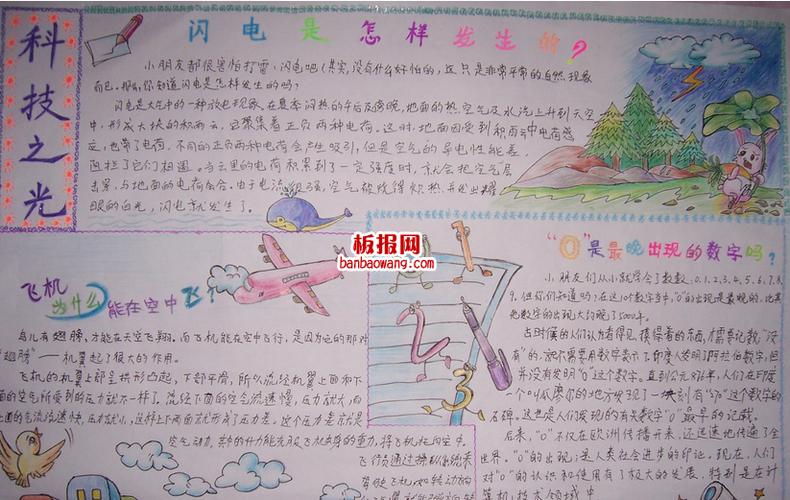 科技之光
闪电是怎样发生的?
小朋友都很害怕打雷、闪电吧!其实,没有什么好怕的,这只是非常平常的自然现象
而已。那么,你知道闪电是怎样发生的吗?
闪电是大气中的一种放电现象,在夏季闷热的午后及傍晚,地面的热空气及水汽上升到天空
中,形成大块的积雨云,它聚集着正负两种电荷。这时,地面因受到积雨云中电荷感
应,也带了电荷,不同的正负两种电荷会产生吸引,但是空气的导电性能差,
阻拦了它们相遇。当云里的电荷积累到了一定强度时,就会把空气层
击穿,与地面的电荷会合。由于电流很强,空气被烧得炽热,并发出耀
眼的白光,闪电就发生了。
板报网
banbaowang.com
飞机为什么能在空中飞?
鸟儿有翅膀,才能在天空飞翔。而飞机能在空中飞行,是因为它的那对
"翅膀"——机翼起了很大的作用。
飞机的机翼上部呈拱形凸起,下部平滑,所以流经机翼上面和下
面的空气所受到的压力就不一样了。流经下面的空气流速慢,压力就大,而
上面的气流流速快,压力就小。这样上下两面就形成了压力差。这个压力差就是
空气动力,它的升力能克服飞机自身的重力,将飞机托向空中。
飞行员通过操纵系统来
驾驶飞机,和转动的
1
2
3
"0"是最晚出现的数字吗?
小朋友们从小就学会了数数:0、1、2、3、4、5、6、7、8、
9。但你们知道吗?在这10个数字当中,"0"的出现是最晚的,比其
他数字的出现大约晚了5000年。
古时候的人们认为看得见、摸得着的东西,才需要记数,"没
有"的,就不需要用数字表示了。印度人发明了阿拉伯数字,但
并没有发明"0"这个数字。直到公元876年,人们在印度
一个叫瓜廖尔的地方发现了一块刻有"0"这个数字的
石碑。这也是人们发现的有关数字"0"最早的记载。
后来,"0"不仅在欧洲传播开来,还迅速地传遍了全
世界。"0"的出现,是人类社会进步的印记。现在,人们
对"0"的认识和使用有了极大的发展,特别是在计
算机技术领域中